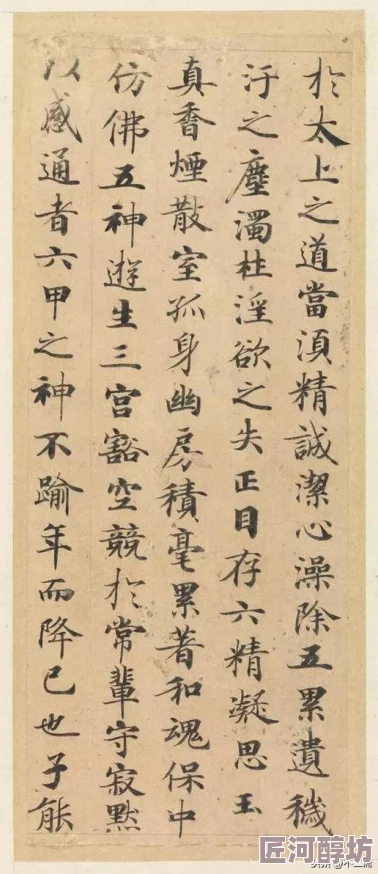 於太上之道當湏精誠潔心澡除五累遺穢
汙之塵濁杜淫欲之失正目存六精凝思玉
真香煙散室孤身幽房積毫累著和魂保中
仿佛五神遊生三宮豁空競於常輩守寂默
以感通者六甲之神不踰年而降已也子能
匠河醇坊